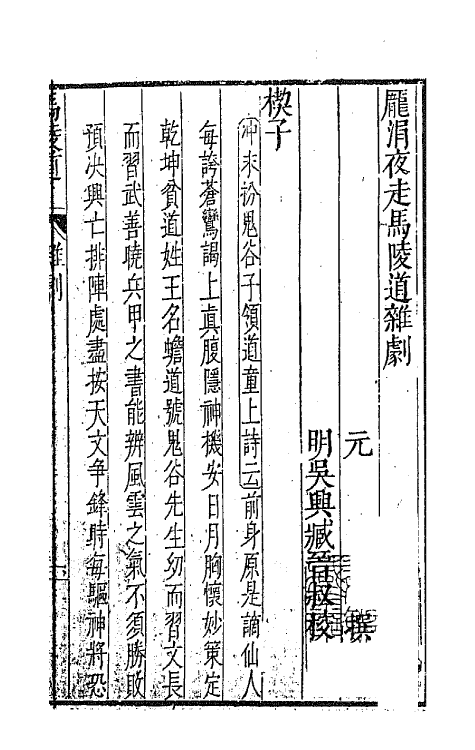 龎涓夜走馬陵道雜劇
元　撰
明吳興臧晉叔校
楔子
冲末扮鬼谷子領道童上詩云前身原是謫仙人
每誇蒼鸞謁上真腹隱神機安日月胸懷妙策定
乾坤貧道姓王名蟾道號鬼谷先生幼而習文長
而習武善曉兵甲之書能辨風雲之氣不須勝敗
預決興亡排陣處盡按天文爭鋒時每驅神將恐
馬陵道　雜劇　一